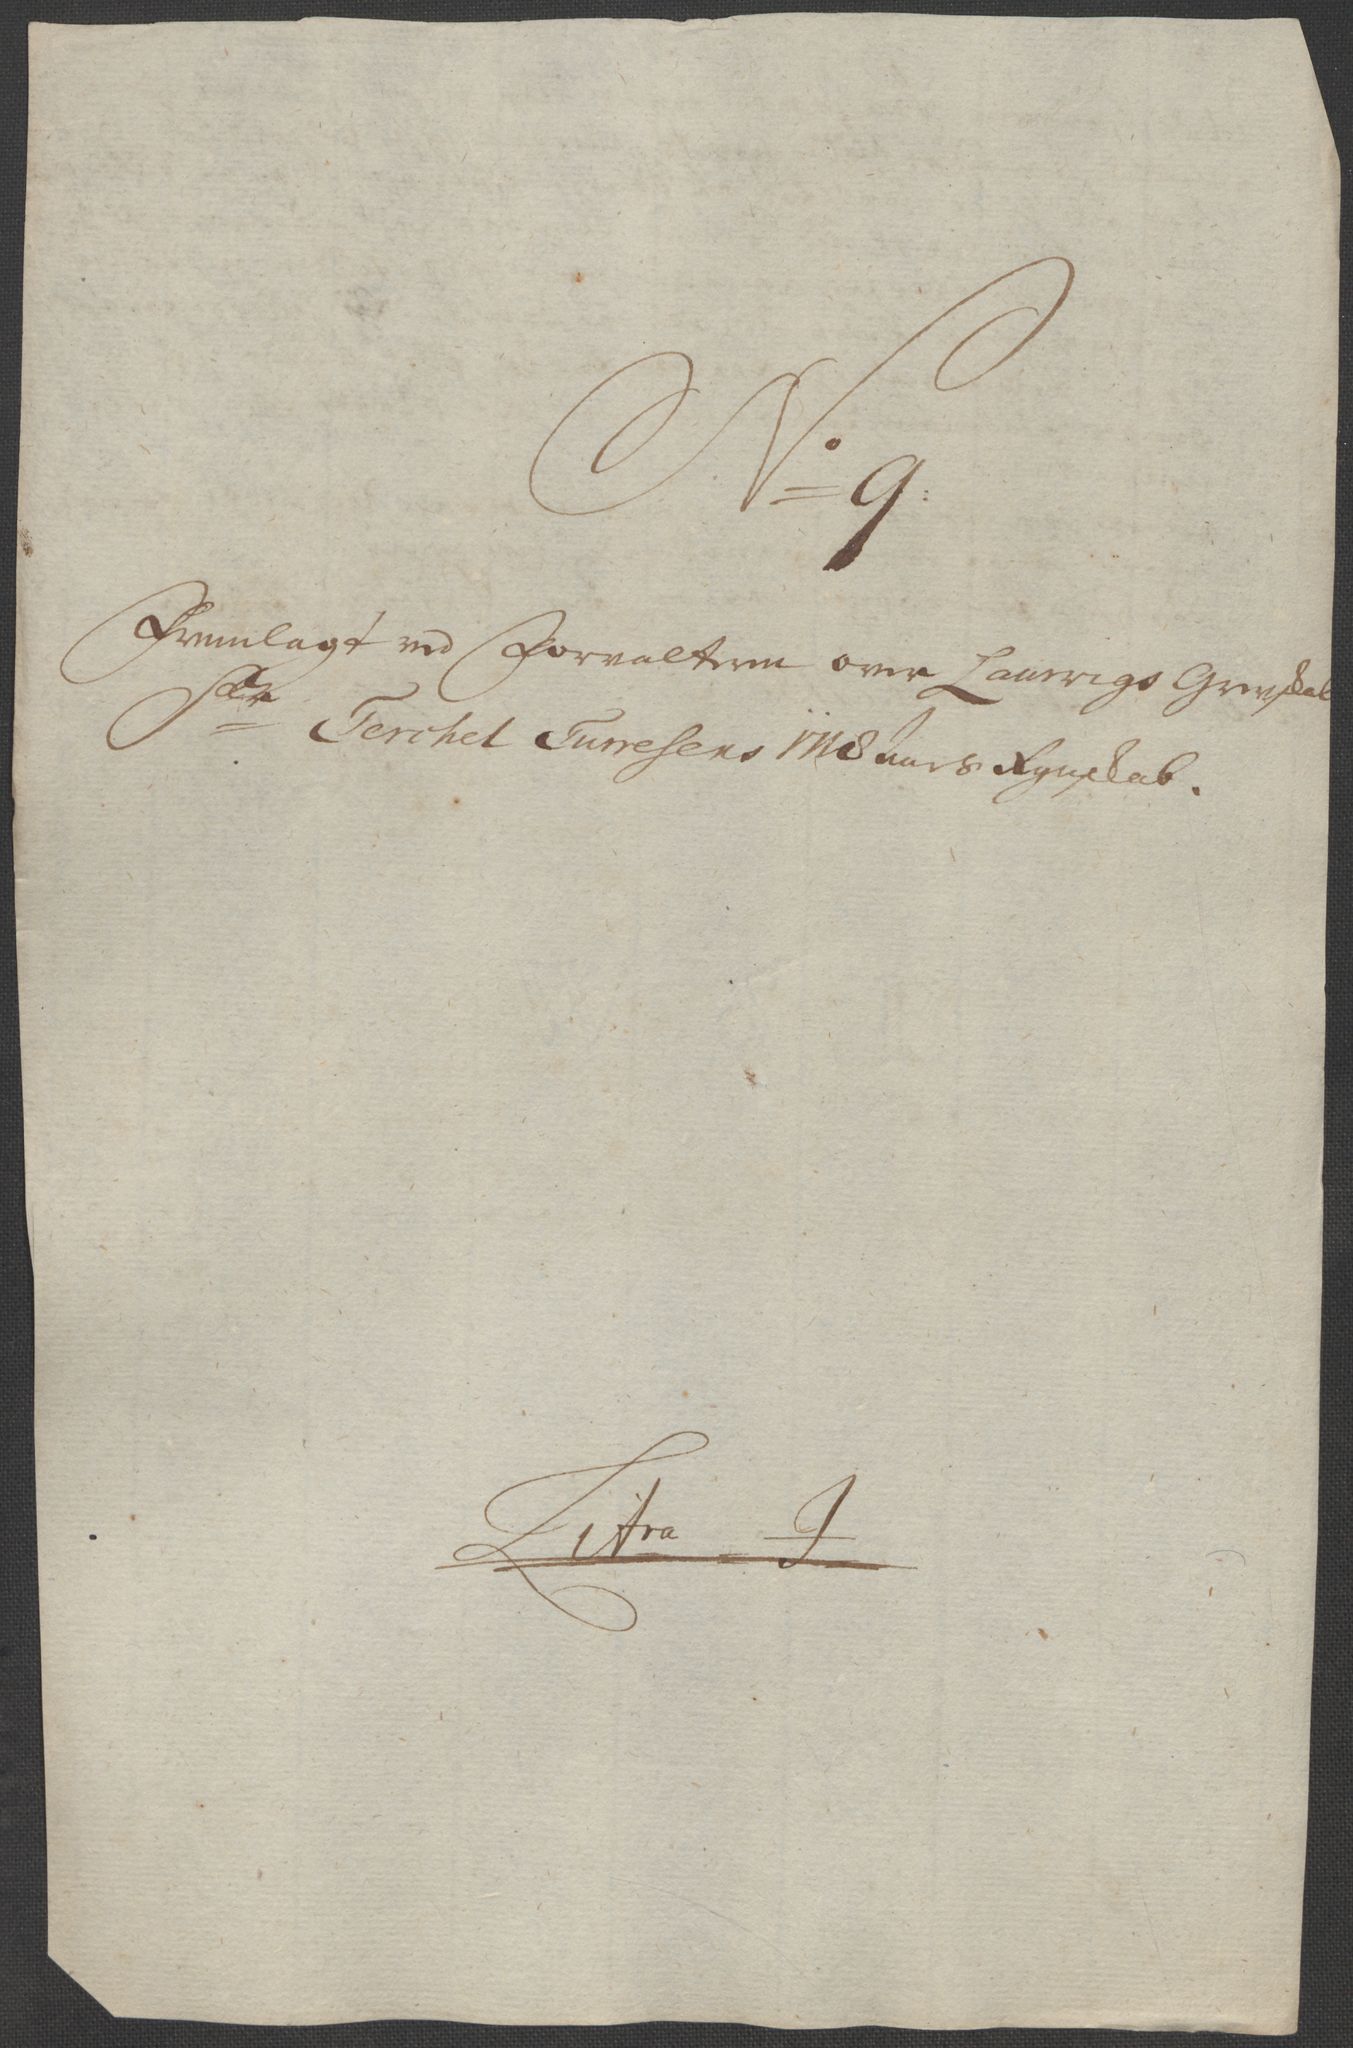 No 9:
Fremlagt ved Forvalteren over Laurvigs Grevskab
Sr Terchel Turresens 1718 aars Regnskab.
Litra I